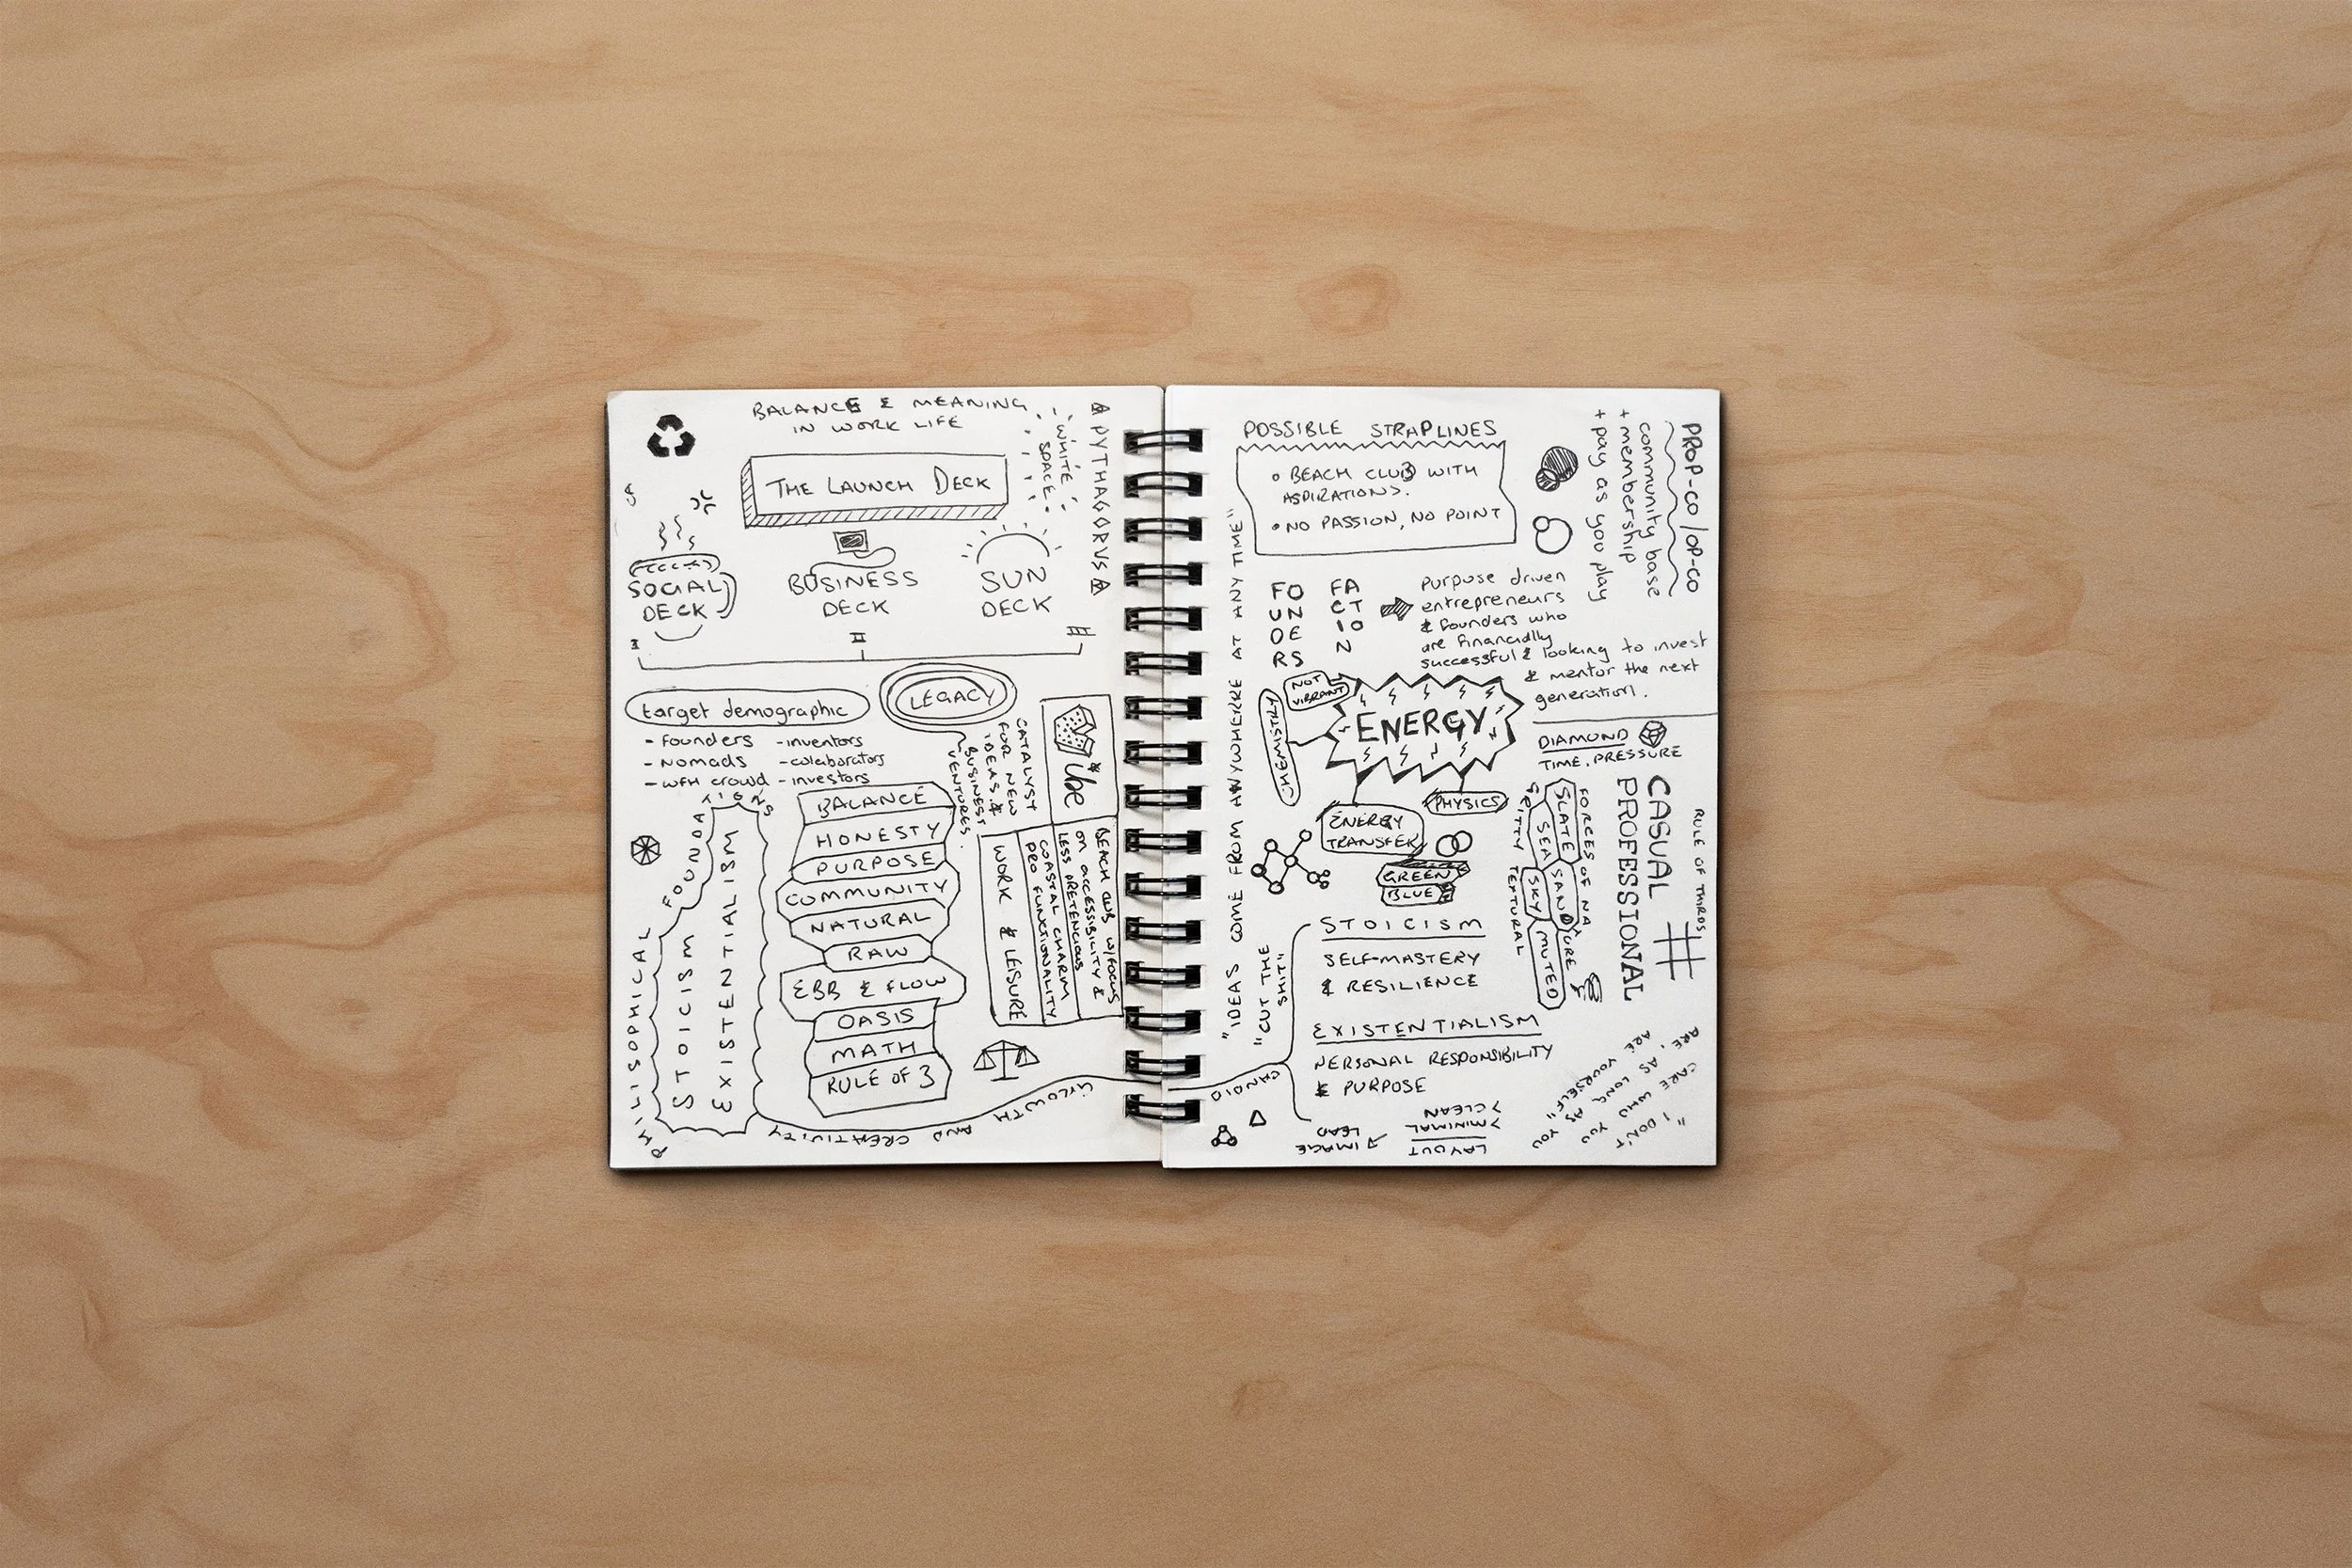 BALANCE & MEANING
IN WORK LIFE
WHITE
SPACE
PYTHAGORUS
THE LAUNCH DECK
SOCIAL
DECK
BUSINESS
DECK
SUN
DECK
I
II
III
target demographic
- founders
- nomads
- WFH crowd
- inventors
- colaborators
- investors
LEGACY
CATALYST
FOR NEW
IDEAS &
BUSINESS
VENTURES.
Vibe
BEACH CLUB W/FOCUS
ON ACCESSIBILITY &
LESS PRETENCIOUS
COASTAL CHARM
PRO FUNCTIONALITY
WORK & LEISURE
BALANCE
HONESTY
PURPOSE
COMMUNITY
NATURAL
RAW
EBB & FLOW
OASIS
MATH
RULE OF 3
PHILISOPHICAL
FOUNDATIONS
STOICISM
EXISTENTIALISM
CREATIVITY AND GROWTH
POSSIBLE STRAPLINES
• BEACH CLUB WITH
ASPIRATIONS.
• NO PASSION, NO POINT
PROP-CO/OP-CO
community base
+ membership
+ pay as you play
"IDEAS COME FROM ANYWHERE AT ANY TIME"
FO
UN
DE
RS
FA
CT
IO
N
purpose driven
entrepreneurs
& founders who
are financially
successful & looking to invest
& mentor the next
generation.
NOT
VIBRANT
CHEMISTRY
ENERGY
PHYSICS
ENERGY
TRANSFER
GREEN
BLUE
DIAMOND
TIME, PRESSURE
RULE OF THIRDS
CASUAL
PROFESSIONAL
FORCES OF NATURE
SLATE
SAND
SEA
SKY
MUTED
GRITTY TEXTURAL
"CUT THE
SHIT"
CANDID
STOICISM
SELF-MASTERY
& RESILIENCE
EXISTENTIALISM
PERSONAL RESPONSIBILITY
& PURPOSE
LAYOUT
> MINIMAL
> CLEAN
IMAGE
LEAD
"I DON'T
CARE WHO YOU
ARE, AS LONG AS YOU
ARE YOURSELF"